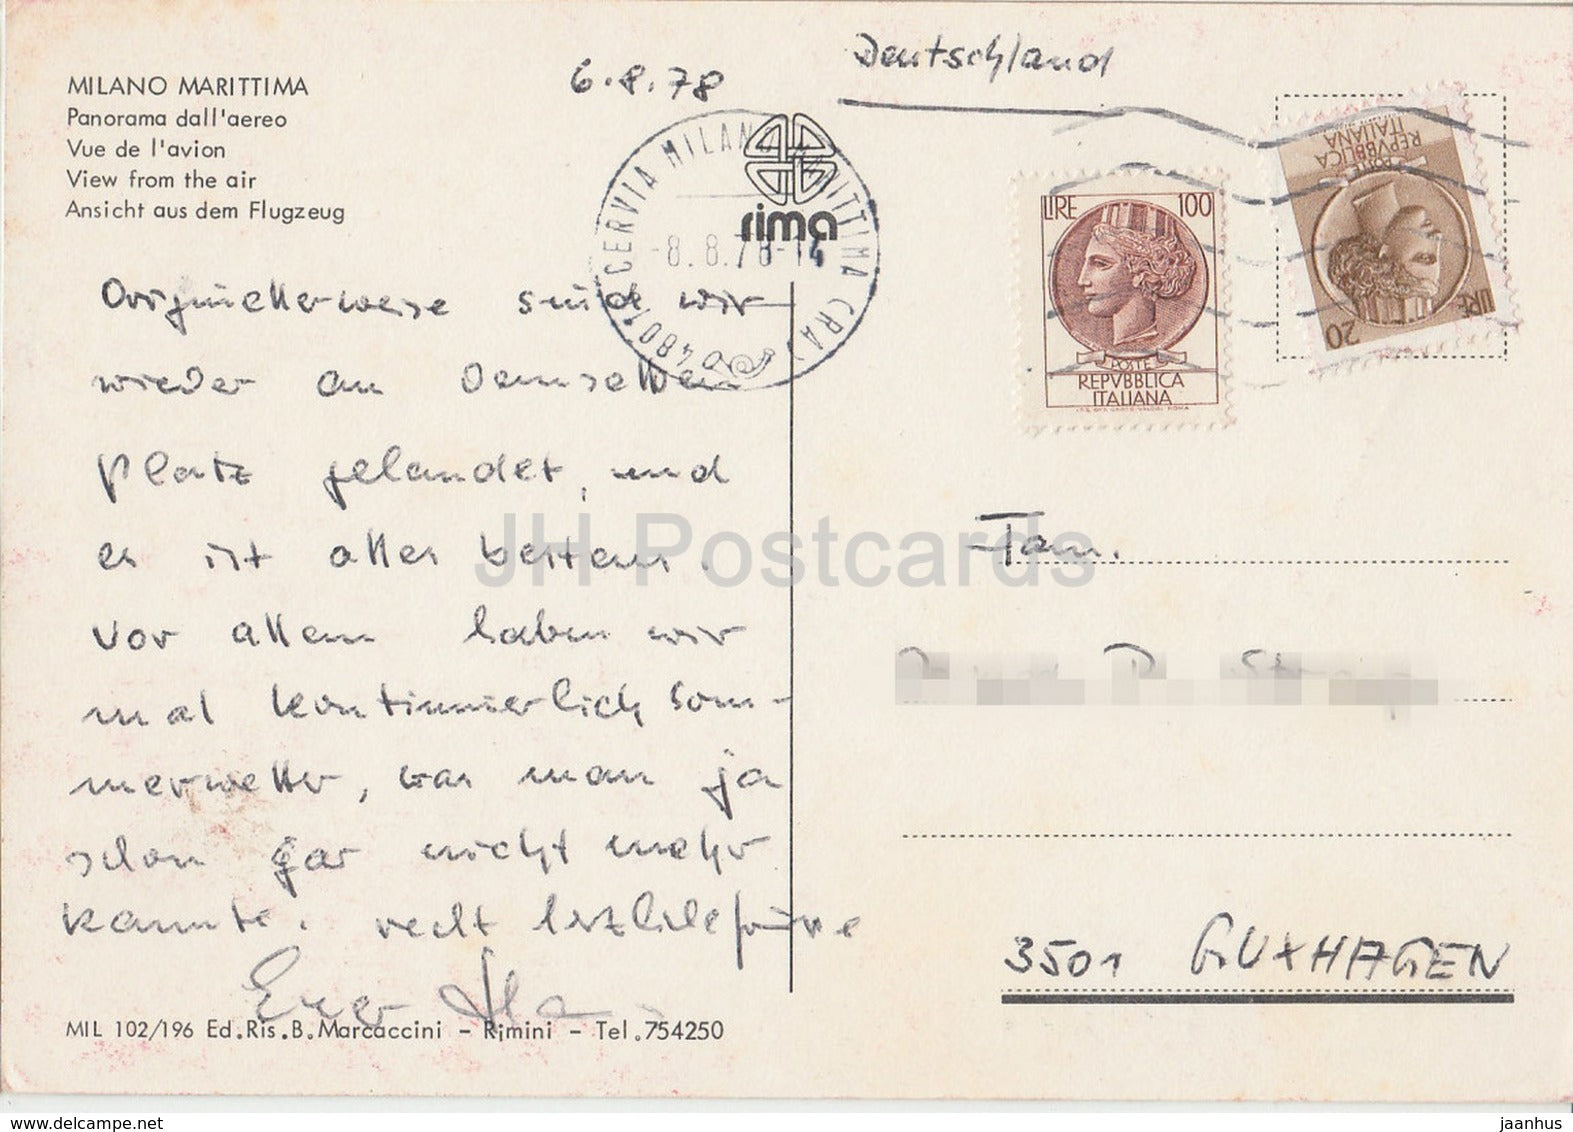 MILANO MARITTIMA
Panorama dall'aereo
Vue de l'avion
View from the air
Ansicht aus dem Flugzeug
6.8.78
Deutschland
rima
48016 CERVIA MILANO MARITTIMA (RA)
-8.8.78-14
LIRE 100
POSTE
REPVBBLICA
ITALIANA
LIRE 20
POSTE
REPVBBLICA
ITALIANA
Originellerweise sind wir
wieder an demselben
Platz gelandet, und
es ist alles bestens.
Vor allem haben wir
mal kontinuierlich Som-
merwetter, was man ja
schon gar nicht mehr
kannte. recht herzliche Grüsse
Fam.
3501 GUXHAGEN
MIL 102/196 Ed.Ris.B.Marcaccini - Rimini - Tel.754250
JH Postcards
www.delcampe.net
jaanhus